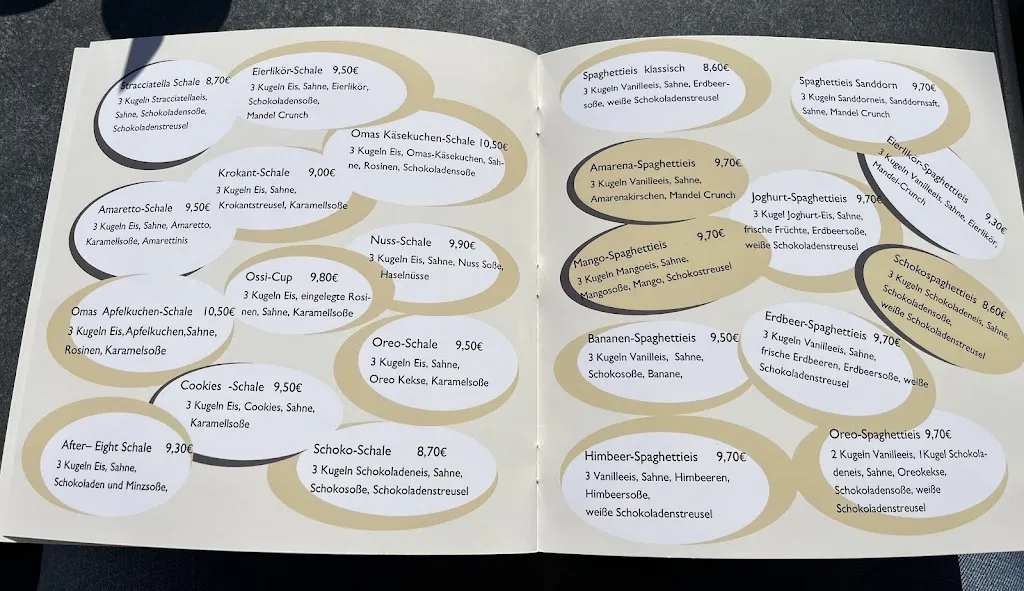 Stracciatella Schale 8,70€
3 Kugeln Stracciatellaeis,
Sahne, Schokoladensoße,
Schokoladenstreusel
Eierlikör-Schale 9,50€
3 Kugeln Eis, Sahne, Eierlikör,
Schokoladensoße,
Mandel Crunch
Omas Käsekuchen-Schale 10,50€
3 Kugeln Eis, Omas-Käsekuchen, Sah-
ne, Rosinen, Schokoladensoße
Krokant-Schale 9,00€
3 Kugeln Eis, Sahne,
Krokantstreusel, Karamellsoße
Amaretto-Schale 9,50€
3 Kugeln Eis, Sahne, Amaretto,
Karamellsoße, Amarettinis
Nuss-Schale 9,90€
3 Kugeln Eis, Sahne, Nuss Soße,
Haselnüsse
Ossi-Cup 9,80€
3 Kugeln Eis, eingelegte Rosi-
nen, Sahne, Karamellsoße
Omas Apfelkuchen-Schale 10,50€
3 Kugeln Eis,Apfelkuchen,Sahne,
Rosinen, Karamelsoße
Oreo-Schale 9,50€
3 Kugeln Eis, Sahne,
Oreo Kekse, Karamelsoße
Cookies -Schale 9,50€
3 Kugeln Eis, Cookies, Sahne,
Karamellsoße
After– Eight Schale 9,30€
3 Kugeln Eis, Sahne,
Schokoladen und Minzsoße,
Schoko-Schale 8,70€
3 Kugeln Schokoladeneis, Sahne,
Schokosoße, Schokoladenstreusel
Spaghettieis klassisch 8,60€
3 Kugeln Vanilleeis, Sahne, Erdbeer-
soße, weiße Schokoladenstreusel
Spaghettieis Sanddorn 9,70€
3 Kugeln Sanddorneis, Sanddornsaft,
Sahne, Mandel Crunch
Eierlikör-Spaghettieis 9,30€
3 Kugeln Vanilleeis, Sahne, Eierlikör,
Mandel-Crunch
Amarena-Spaghettieis 9,70€
3 Kugeln Vanilleeis, Sahne,
Amarenakirschen, Mandel Crunch
Joghurt-Spaghettieis 9,70€
3 Kugel Joghurt-Eis, Sahne,
frische Früchte, Erdbeersoße,
weiße Schokoladenstreusel
Mango-Spaghettieis 9,70€
3 Kugeln Mangoeis, Sahne,
Mangosoße, Mango, Schokostreusel
Schokospaghettieis 8,60€
3 Kugeln Schokoladeneis, Sahne,
Schokoladensoße,
weiße Schokoladenstreusel
Bananen-Spaghettieis 9,50€
3 Kugeln Vanilleis, Sahne,
Schokosoße, Banane,
Erdbeer-Spaghettieis 9,70€
3 Kugeln Vanilleeis, Sahne,
frische Erdbeeren, Erdbeersoße, weiße
Schokoladenstreusel
Himbeer-Spaghettieis 9,70€
3 Vanilleeis, Sahne, Himbeeren,
Himbeersoße,
weiße Schokoladenstreusel
Oreo-Spaghettieis 9,70€
2 Kugeln Vanilleeis, 1Kugel Schokola-
deneis, Sahne, Oreokekse,
Schokoladensoße, weiße
Schokoladenstreusel